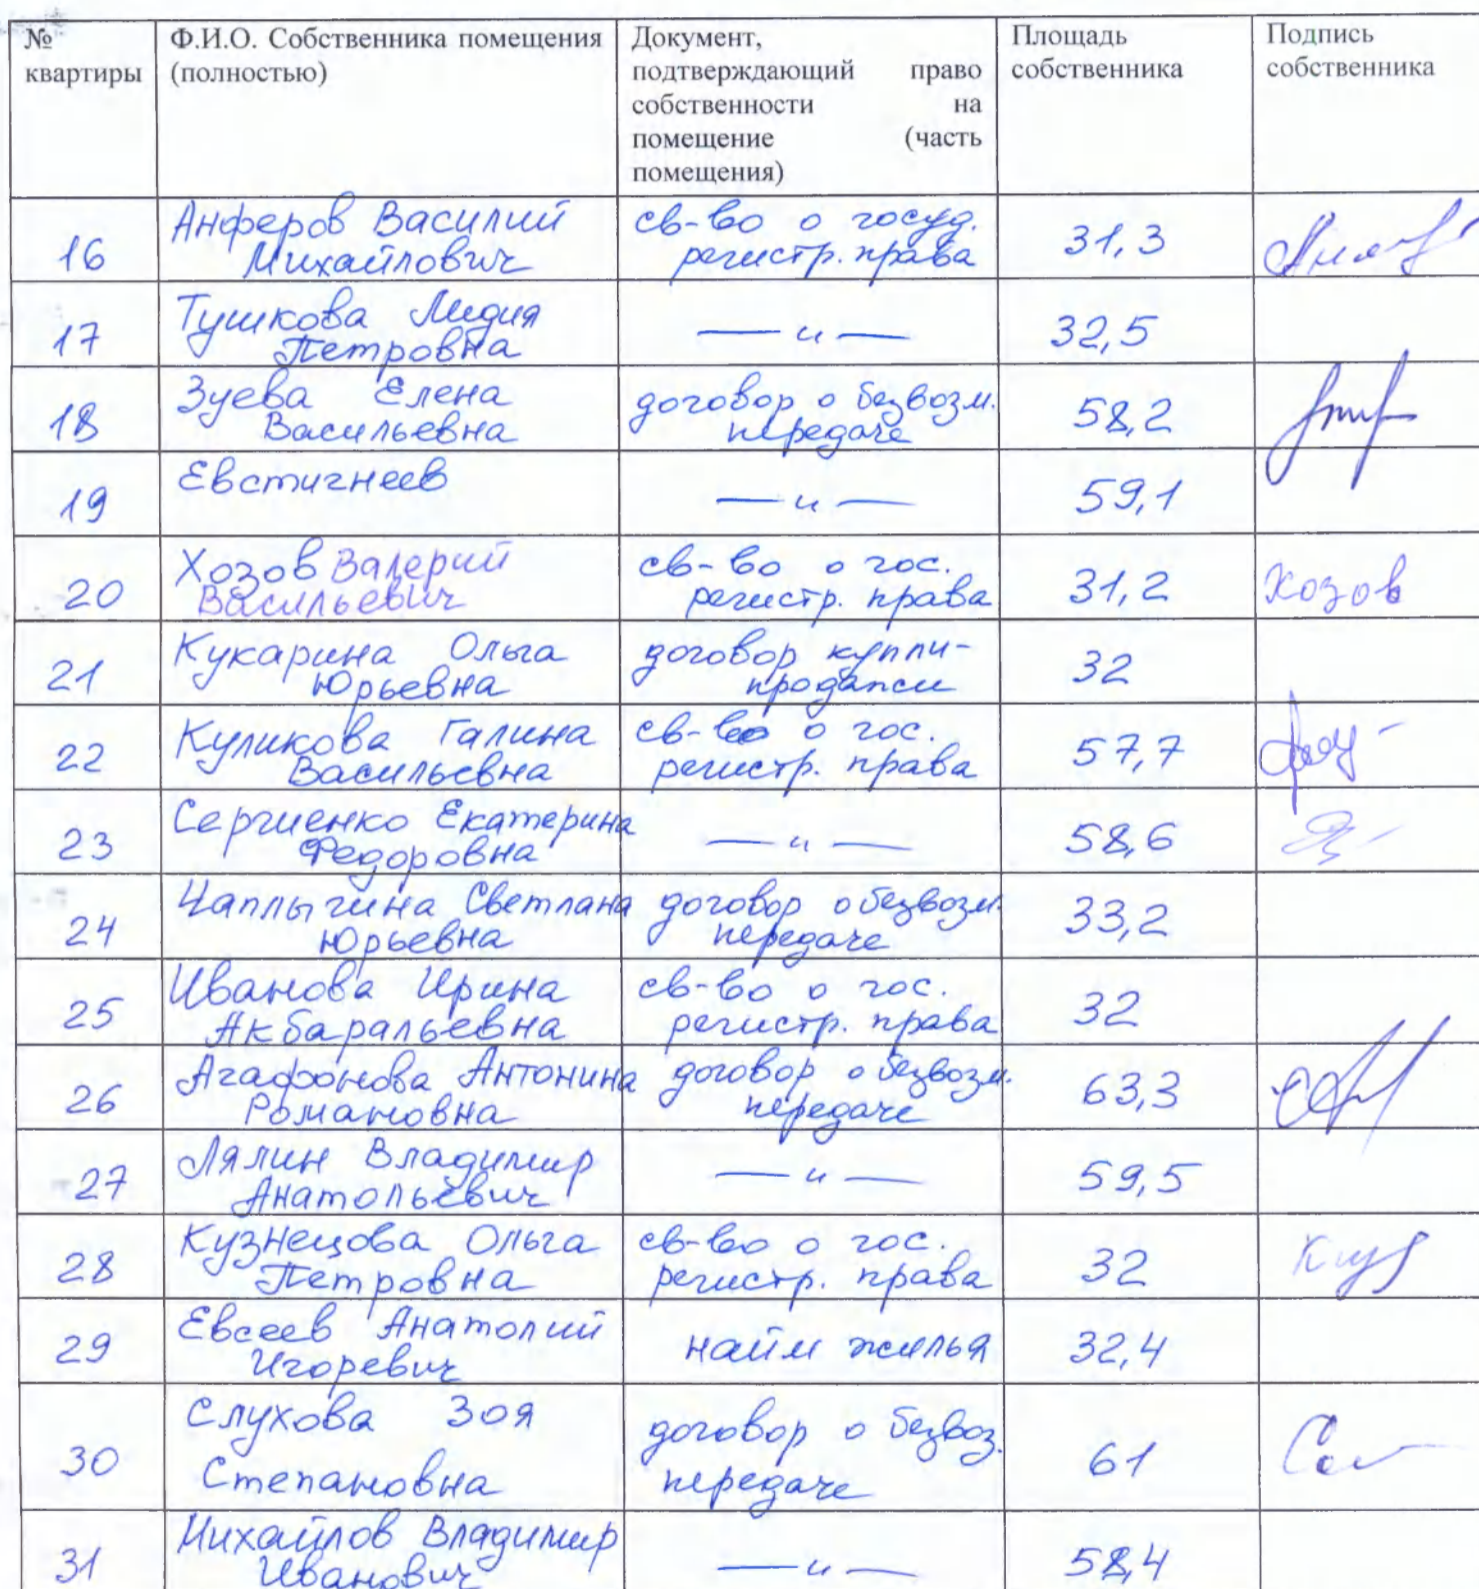 № квартиры
Ф.И.О. Собственника помещения (полностью)
Документ, подтверждающий право собственности на помещение (часть помещения)
Площадь собственника
Подпись собственника
16
Анферов Василий
Михайлович
св-во о госуд.
регистр. права
31,3
17
Тушкова Лидия
Петровна
— и —
32,5
18
Зуева Елена
Васильевна
договор о безвозм.
передаче
58,2
19
Евстигнеев
— и —
59,1
20
Хозов Валерий
Васильевич
св-во о гос.
регистр. права
31,2
Хозов
21
Кукарина Ольга
Юрьевна
договор купли-
продажи
32
22
Куликова Галина
Васильевна
св-во о гос.
регистр. права
57,7
23
Сергиенко Екатерина
Федоровна
— и —
58,6
24
Чаплыгина Светлана
Юрьевна
договор о безвозм.
передаче
33,2
25
Иванова Ирина
Акбаральевна
св-во о гос.
регистр. права
32
26
Агафонова Антонина
Романовна
договор о безвозм.
передаче
63,3
27
Лялин Владимир
Анатольевич
— и —
59,5
28
Кузнецова Ольга
Петровна
св-во о гос.
регистр. права
32
29
Евсеев Анатолий
Игоревич
найм жилья
32,4
30
Слухова Зоя
Степановна
договор о безвоз.
передаче
61
31
Михайлов Владимир
Иванович
— и —
58,4